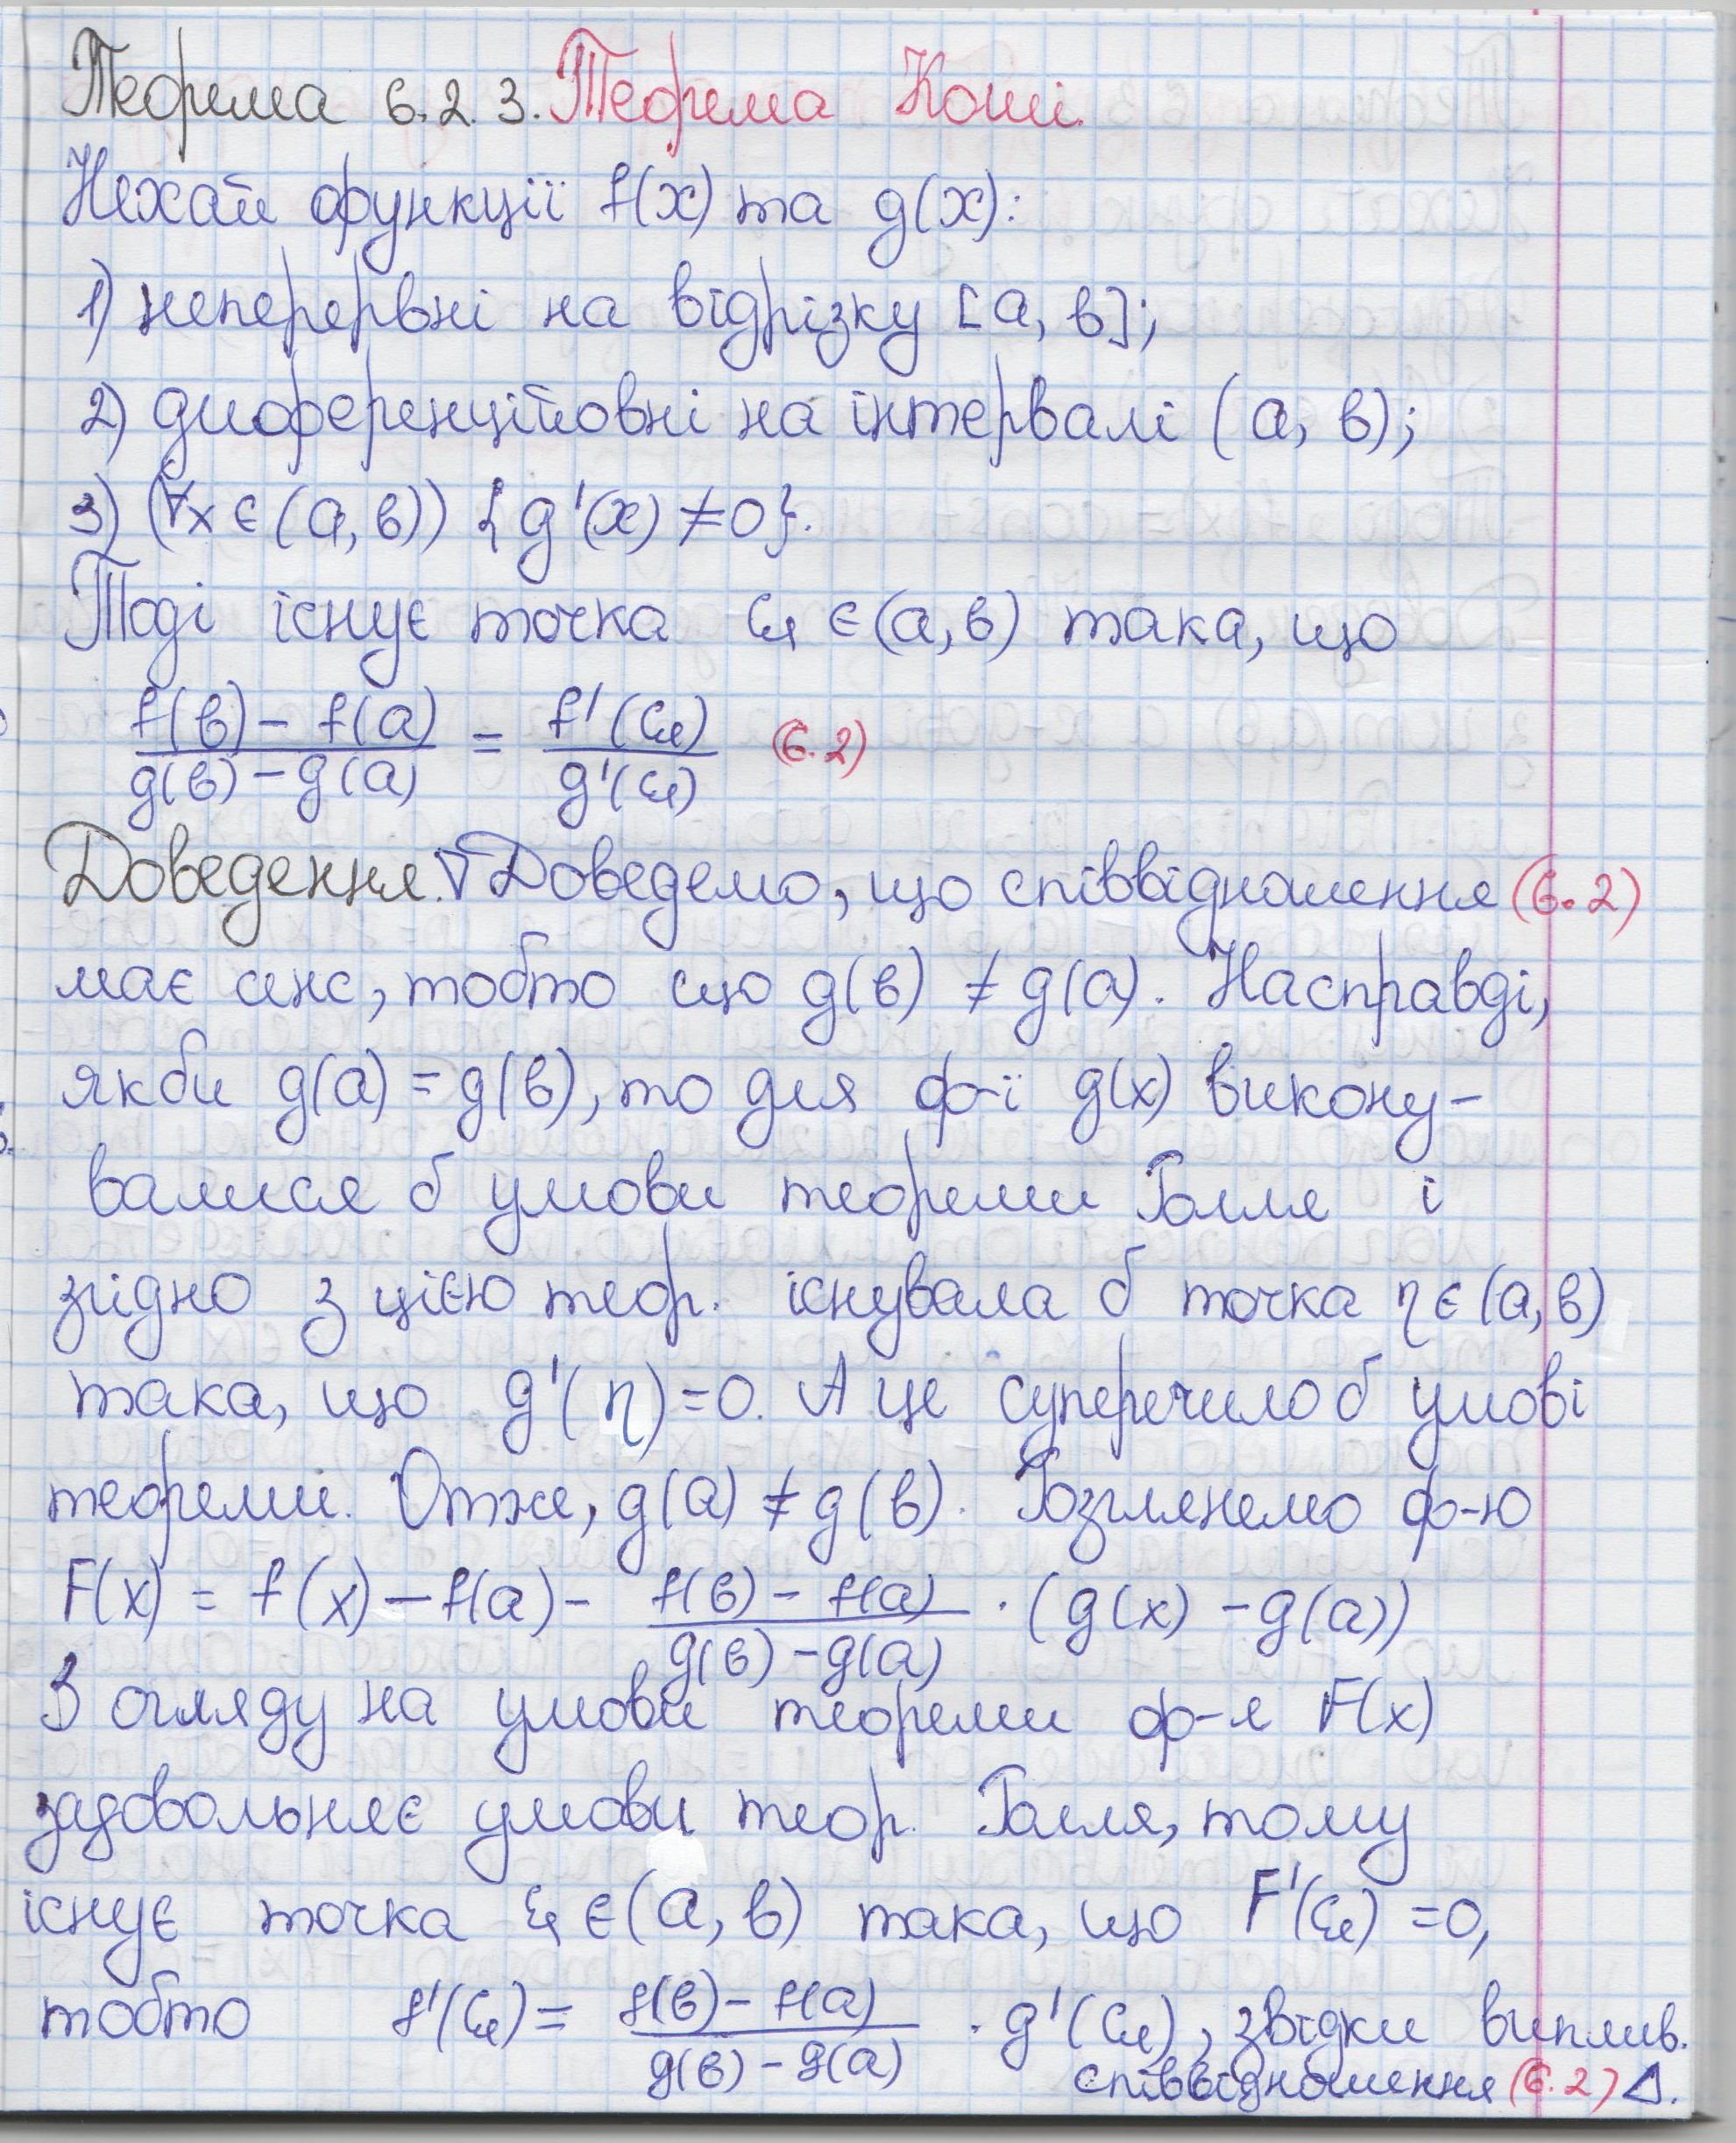 Теорема 6.2.3. Теорема Коші.
Нехай функції f(x) та g(x):
1) неперервні на відрізку [a, в];
2) диференційовні на інтервалі (a, в);
3) (∀x ∈ (a, в)) {g'(x) ≠ 0}.
Тоді існує точка ξ ∈ (a, в) така, що
f(в) - f(a) / g(в) - g(a) = f'(ξ) / g'(ξ) (6.2)
Доведення. ∇ Доведемо, що співвідношення (6.2)
має сенс, тобто що g(в) ≠ g(a). Насправді,
якби g(a) = g(в), то для ф-ї g(x) викону-
валися б умови теореми Ролля і
згідно з цією теор. існувала б точка η ∈ (a, в)
така, що g'(η) = 0. А це суперечило б умові
теореми. Отже, g(a) ≠ g(в). Розглянемо ф-ю
F(x) = f(x) - f(a) - f(в) - f(a) / g(в) - g(a) · (g(x) - g(a))
З огляду на умови теореми ф-я F(x)
задовольняє умови теор. Ролля, тому
існує точка ξ ∈ (a, в) така, що F'(ξ) = 0,
тобто f'(ξ) = f(в) - f(a) / g(в) - g(a) · g'(ξ), звідки виплив.
співвідношення (6.2) Δ.